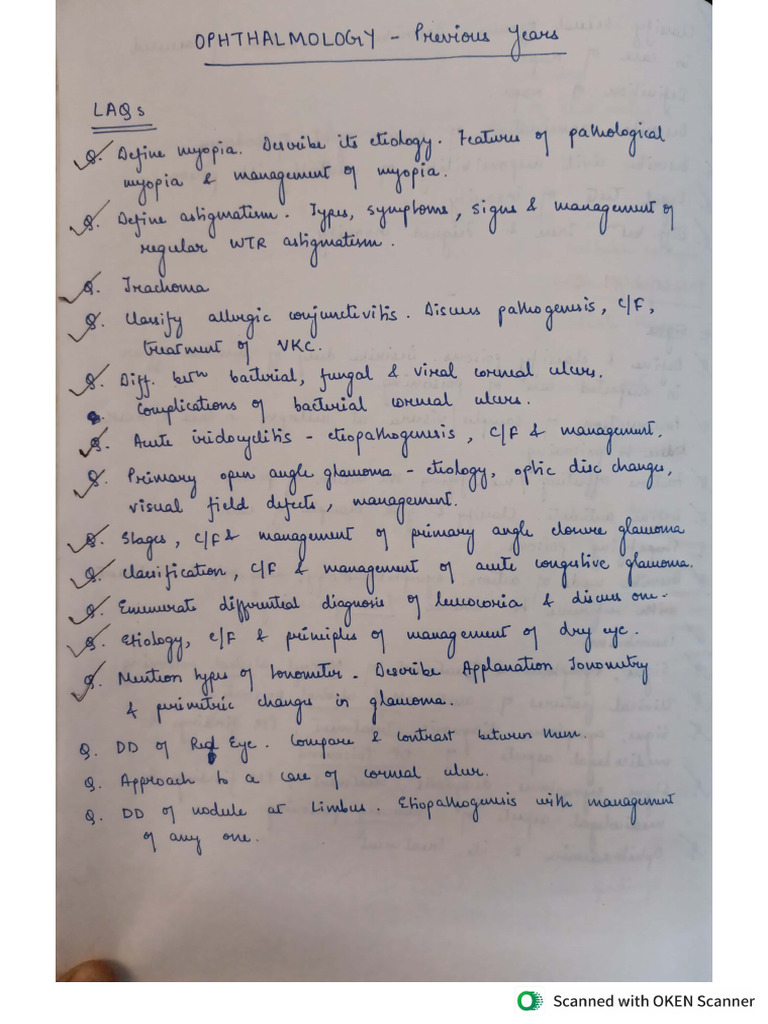 OPHTHALMOLOGY - Previous Years
LAQs
Q. Define myopia. Describe its etiology. Features of pathological
myopia & management of myopia.
Q. Define astigmatism. Types, symptoms, signs & management of
regular WTR astigmatism.
Q. Trachoma
Q. Classify allergic conjunctivitis. Discuss pathogenesis, C/F,
treatment of VKC.
Q. Diff. betn bacterial, fungal & viral corneal ulcers.
Complications of bacterial corneal ulcers.
Q. Acute iridocyclitis - etiopathogenesis, C/F & management.
Q. Primary open angle glaucoma - etiology, optic disc changes,
visual field defects, management.
Q. Stages, C/F & management of primary angle closure glaucoma
Q. Classification, C/F & management of acute congestive glaucoma.
Q. Enumerate differential diagnosis of leucocoria & discuss one.
Q. Etiology, C/F & principles of management of dry eye.
Q. Mention types of tonometer. Describe Applanation Tonometry
& perimetric changes in glaucoma.
Q. DD of Red Eye. Compare & contrast between them.
Q. Approach to a case of corneal ulcer.
Q. DD of nodule at Limbus. Etiopathogenesis with management
of any one.
Scanned with OKEN Scanner